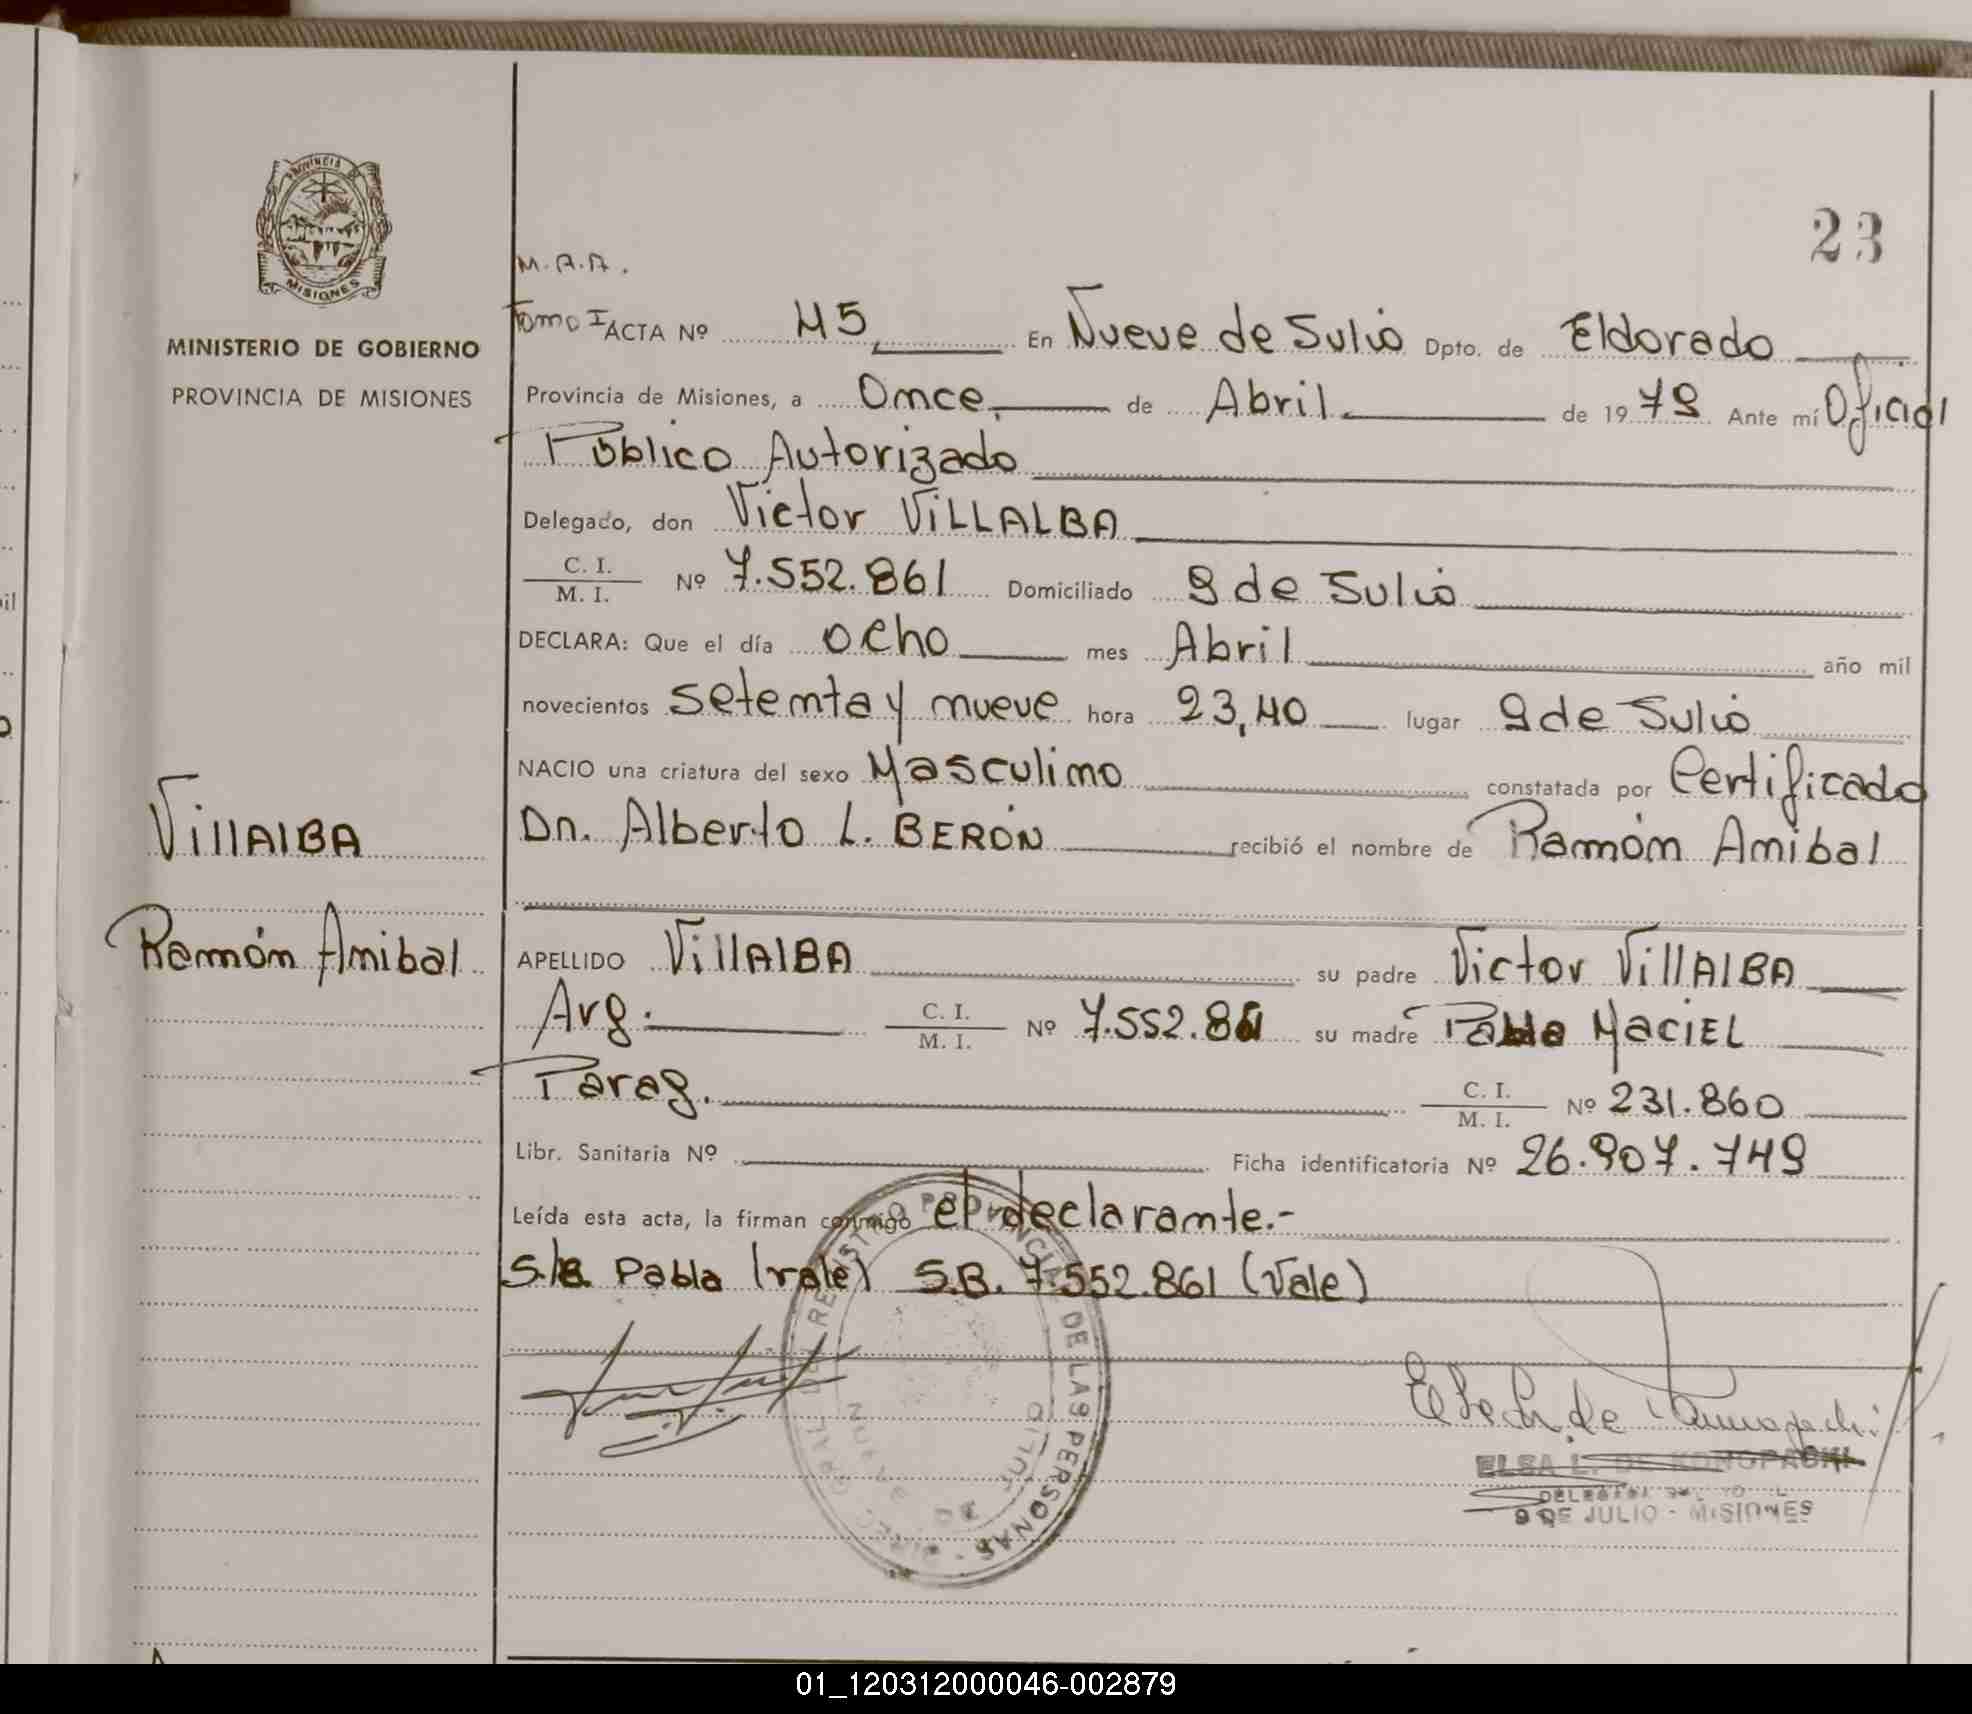 PROVINCIA DE
MISIONES
MINISTERIO DE GOBIERNO
PROVINCIA DE MISIONES
23
M.A.A.
Tomo I ACTA Nº 45 En Nueve de Julio Dpto. de Eldorado
Provincia de Misiones, a Once de Abril de 1979 Ante mí Oficial
Público Autorizado
Delegado, don Victor VILLALBA
C. I. / M. I. Nº 7.552.861 Domiciliado 9 de Julio
DECLARA: Que el día ocho mes Abril año mil
novecientos setenta y nueve hora 23,40 lugar 9 de Julio
NACIO una criatura del sexo Masculino constatada por Certificado
Dn. Alberto L. BERÓN recibió el nombre de Ramón Anibal
VILLALBA
Ramón Anibal
APELLIDO VILLALBA su padre Victor VILLALBA
Arg. C. I. / M. I. Nº 7.552.861 su madre Pabla MACIEL
Parag. C. I. / M. I. Nº 231.860
Libr. Sanitaria Nº Ficha identificatoria Nº 26.907.749
Leída esta acta, la firman conmigo el declarante.-
S/B. Pabla (vale) S.B. 7.552.861 (Vale)
DIREC. GRAL. DEL REGISTRO PROVINCIAL DE LAS PERSONAS
9 DE JULIO
ELSA L. DE KONOPACKI
9 DE JULIO - MISIONES
01_120312000046-002879